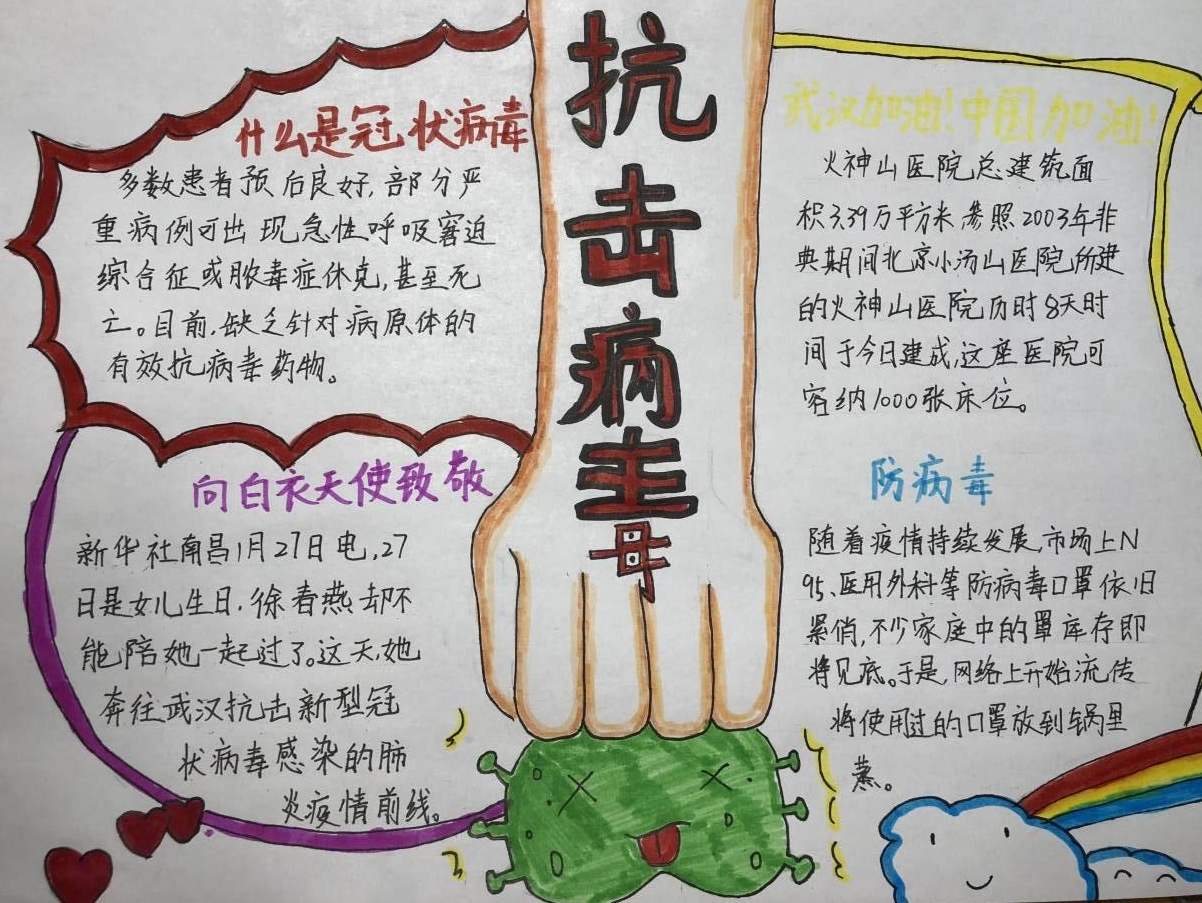 抗击病毒
什么是冠状病毒
多数患者预后良好,部分严
重病例可出现急性呼吸窘迫
综合征或脓毒症休克,甚至死
亡。目前,缺乏针对病原体的
有效抗病毒药物。
向白衣天使致敬
新华社南昌1月27日电,27
日是女儿生日,徐春燕却不
能陪她一起过了。这天,她
奔往武汉抗击新型冠
状病毒感染的肺
炎疫情前线。
武汉加油!中国加油!
火神山医院总建筑面
积3.39万平方米参照2003年非
典期间北京小汤山医院所建
的火神山医院历时8天时
间于今日建成,这座医院可
容纳1000张床位。
防病毒
随着疫情持续发展,市场上N
95、医用外科等防病毒口罩依旧
紧俏,不少家庭中的罩库存即
将见底。于是,网络上开始流传
将使用过的口罩放到锅里
蒸。